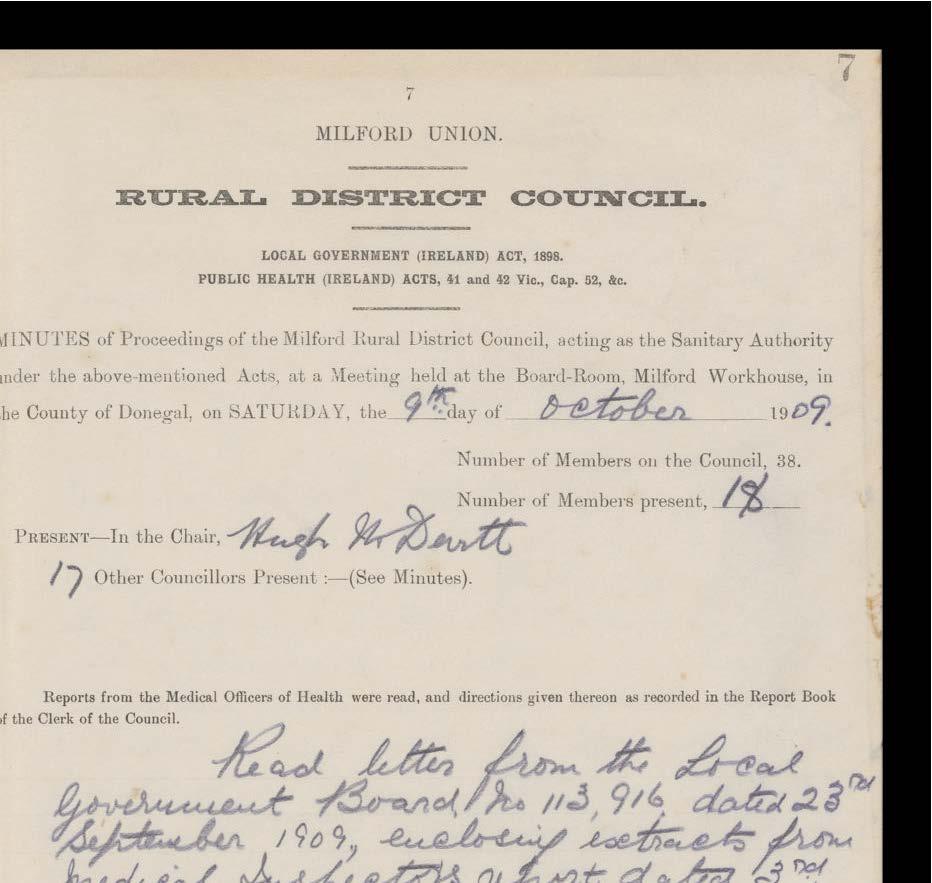 7
7
MILFORD UNION.
RURAL DISTRICT COUNCIL.
LOCAL GOVERNMENT (IRELAND) ACT, 1898.
PUBLIC HEALTH (IRELAND) ACTS, 41 and 42 Vic., Cap. 52, &c.
MINUTES of Proceedings of the Milford Rural District Council, acting as the Sanitary Authority
under the above-mentioned Acts, at a Meeting held at the Board-Room, Milford Workhouse, in
the County of Donegal, on SATURDAY, the 9th day of October 1909.
Number of Members on the Council, 38.
Number of Members present, 18
PRESENT—In the Chair, Hugh McDevitt
17 Other Councillors Present :—(See Minutes).
Reports from the Medical Officers of Health were read, and directions given thereon as recorded in the Report Book
of the Clerk of the Council.
Read letter from the Local
Government Board, No 113,916, dated 23rd
September 1909, enclosing extracts from
Medical Inspector's report dated 3rd